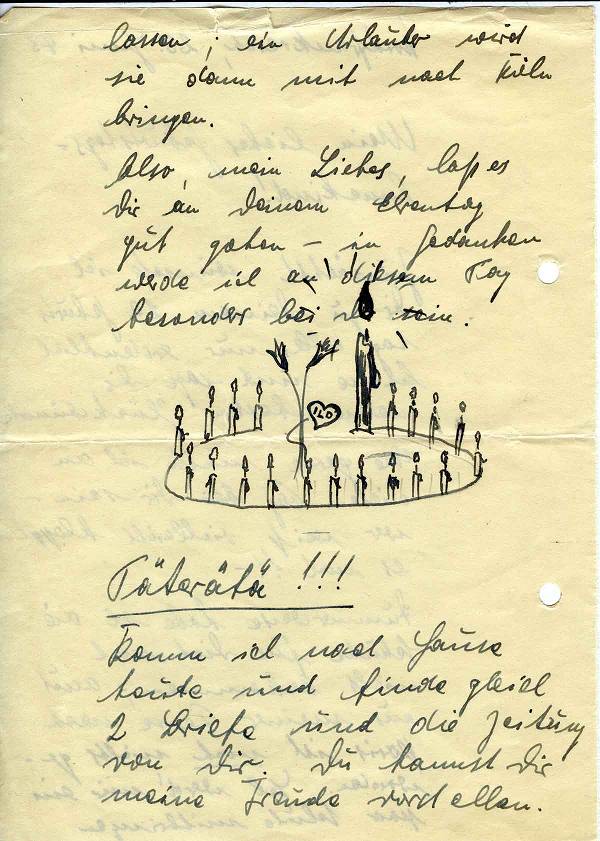 lassen; ein Urlauber wird
sie dann mit nach Köln
bringen.
Also, mein Liebes, laß es
Dir an Deinem Ehrentag
gut gehen – in Gedanken
werde ich an diesem Tag
besonders bei Dir sein.
ILO
Täterätä!!!
Komm ich nach Hause
heute und finde gleich
2 Briefe und die Zeitung
von Dir. Du kannst Dir
meine Freude vorstellen.